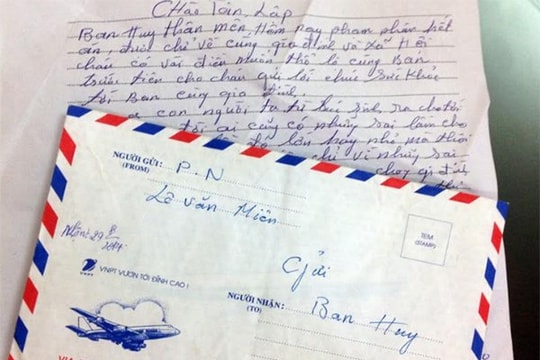 Chào Tân Lập
Ban Huy thân mến, Hôm nay phạm nhân hết
án, được chỉ về cùng gia đình và xã Hội
cháu có vài điều muốn thổ lộ cùng Ban
trước tiên cho cháu gửi lời chúc Sức Khỏe
tới Ban cùng gia đình.
con người ta từ lúc sinh ra cho tới
ai cũng có những sai lầm cho
lớn hay nhỏ mà thôi
chỉ vì những sai
NGƯỜI GỬI: P.N
(FROM)
Lê Văn Miên
TEM
(STAMP)
Nhận: 29
VNPT VƯƠN TỚI ĐỈNH CAO !
Gửi
NGƯỜI NHẬN:
(TO)
Ban Huy